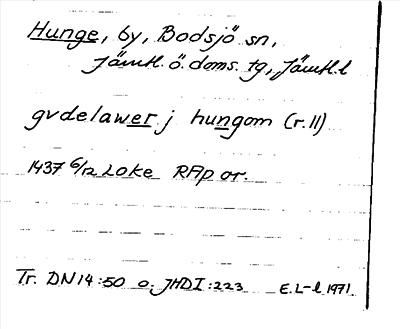 Hunge, by, Bodsjö sn,
Jämtl. ö. doms. tg, Jämtl. l
gvdelawer j hungom (r. 11)
1437 6/12 Loke RAp or.
Tr. DN 14:50 o. JHD I:223 E. L-l 1971